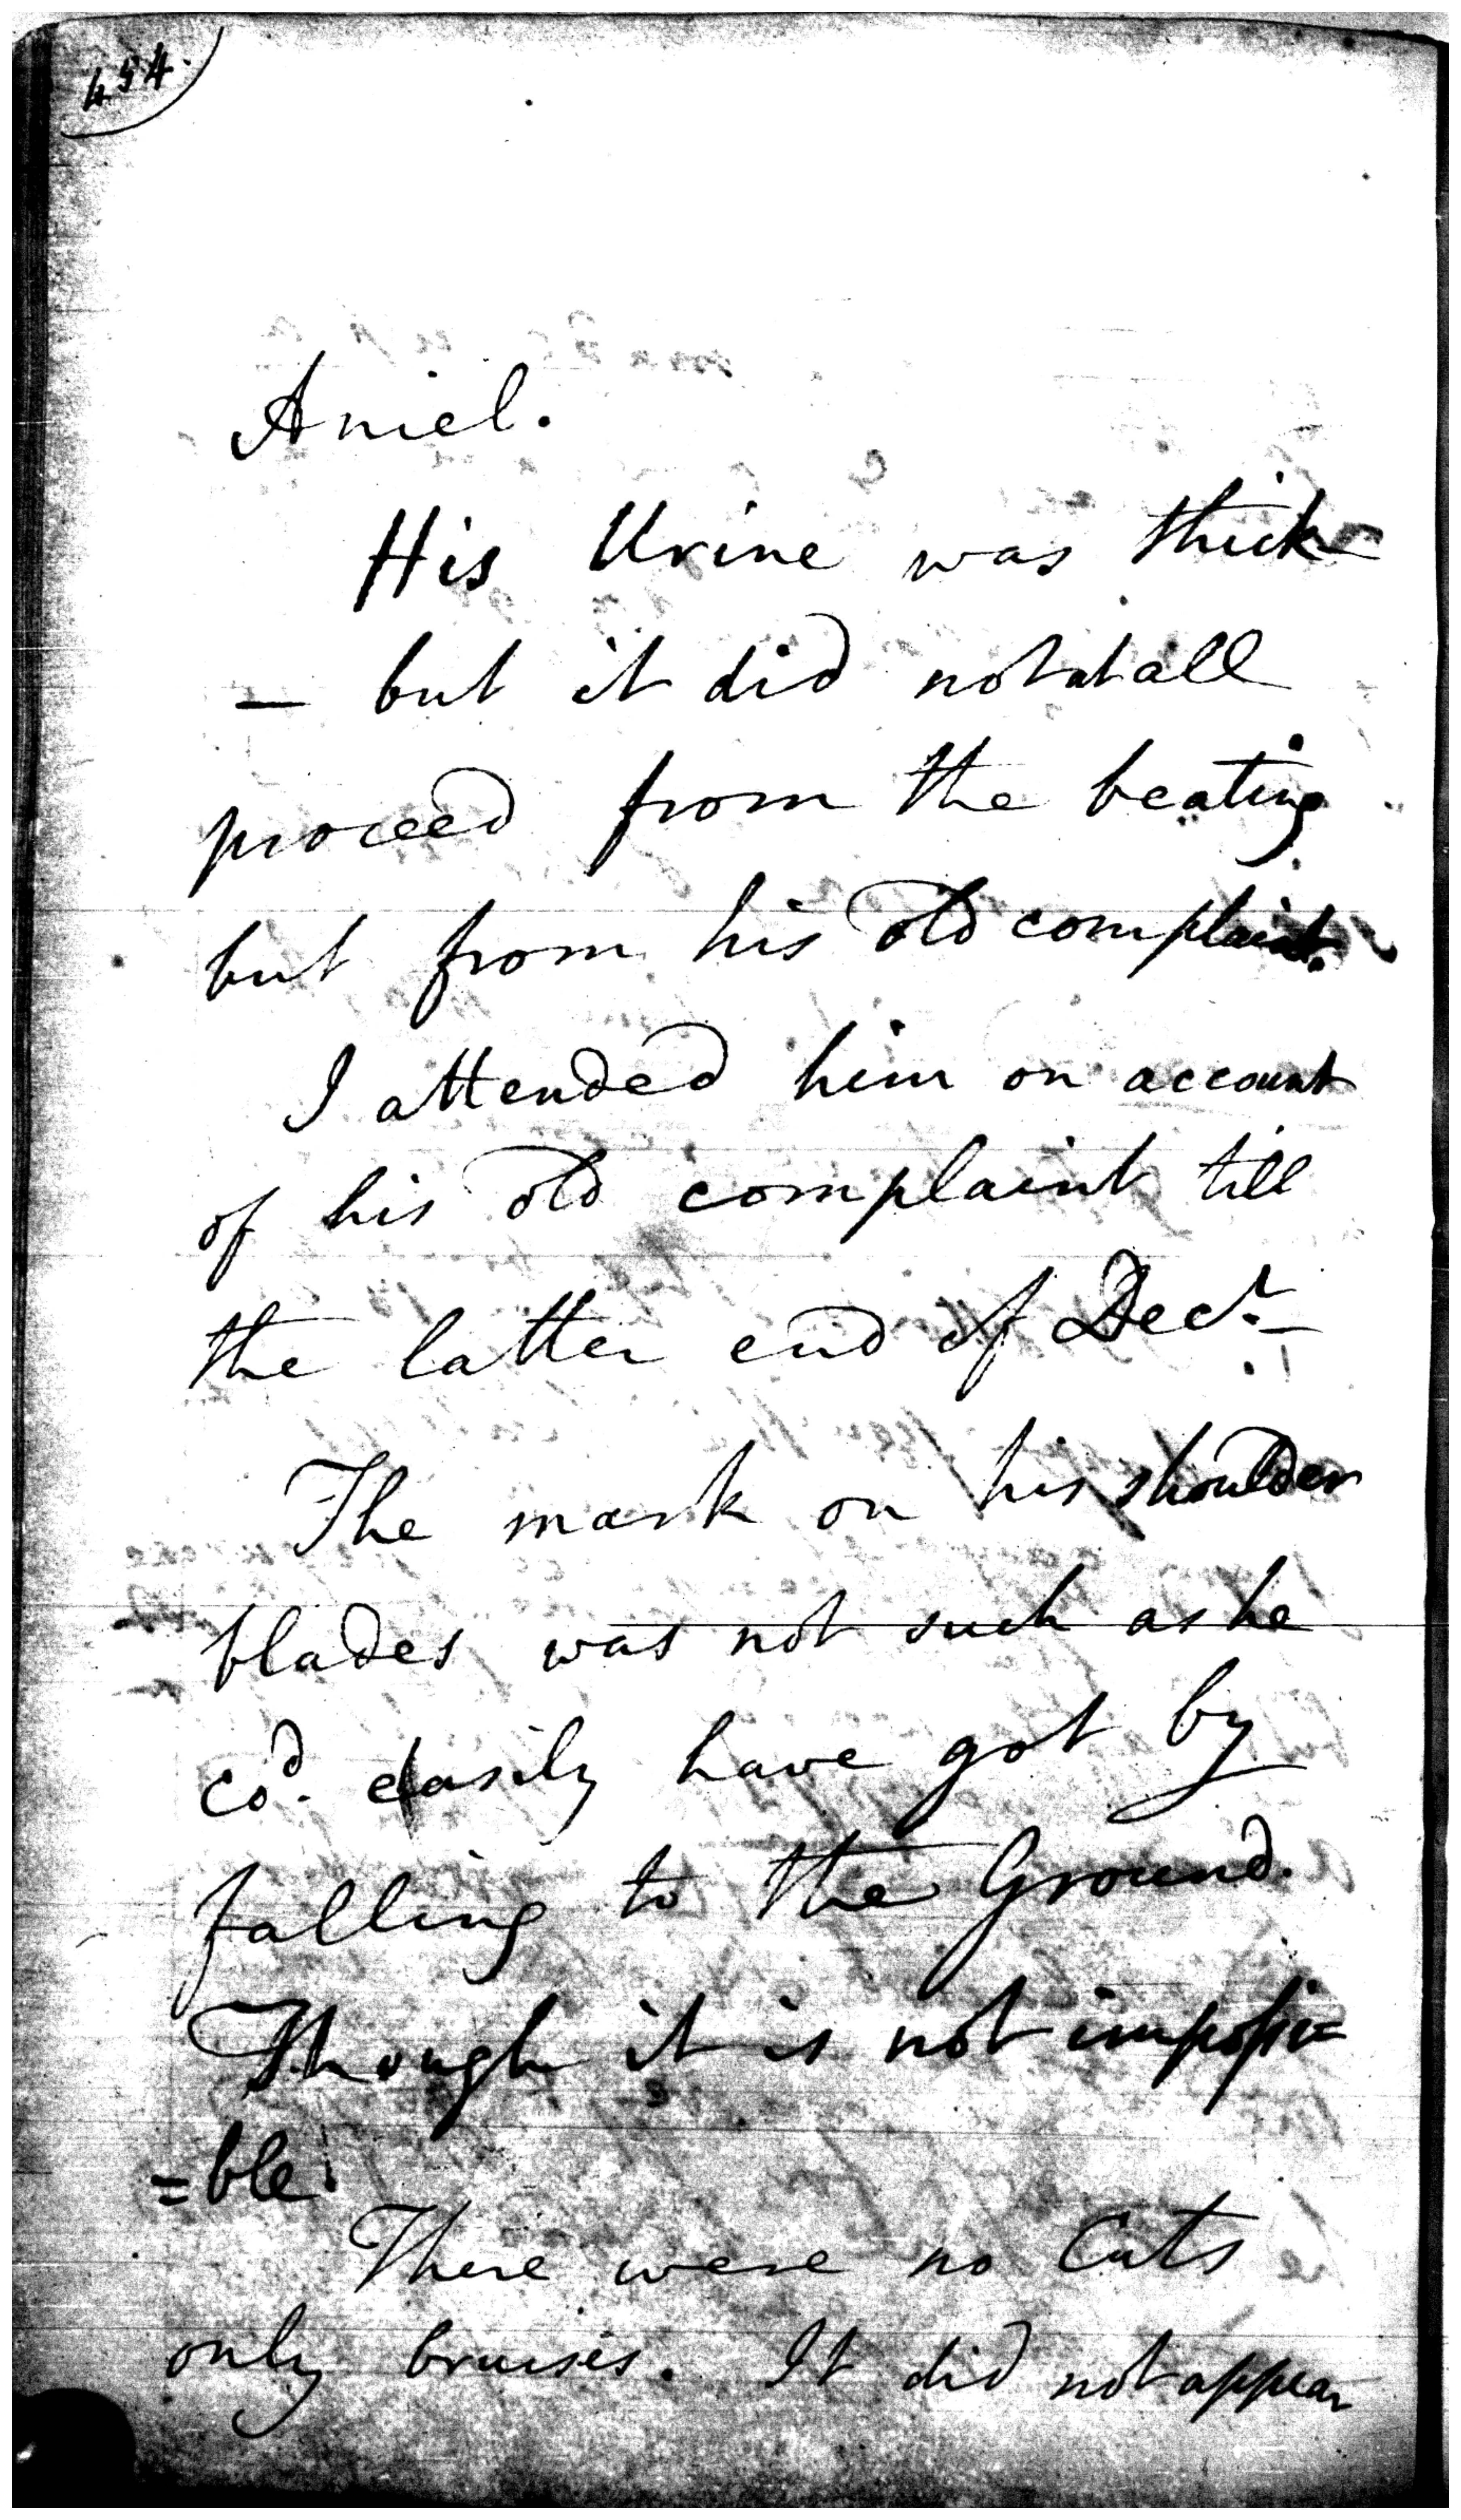 454.
Aniel.
His Urine was thick
— but it did not at all
proceed from the beating
but from his old complaint.
I attended him on account
of his old complaint till
the latter end of Decr. —
The mark on his shoulder
blades was not such as he
cod. easily have got by
falling to the Ground.
Though it is not impossi=
=ble.
There were no Cuts
only bruises. It did not appear